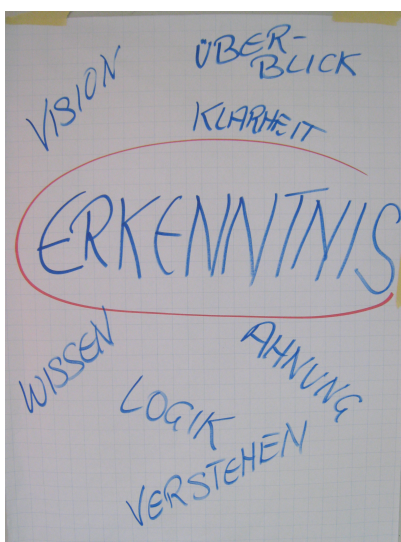 VISION
ÜBER-
BLICK
KLARHEIT
ERKENNTNIS
WISSEN
AHNUNG
LOGIK
VERSTEHEN